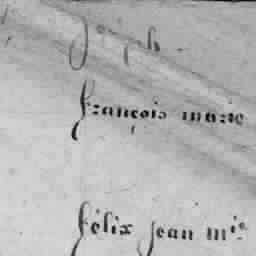 joseph
françois marie
félix jean mie